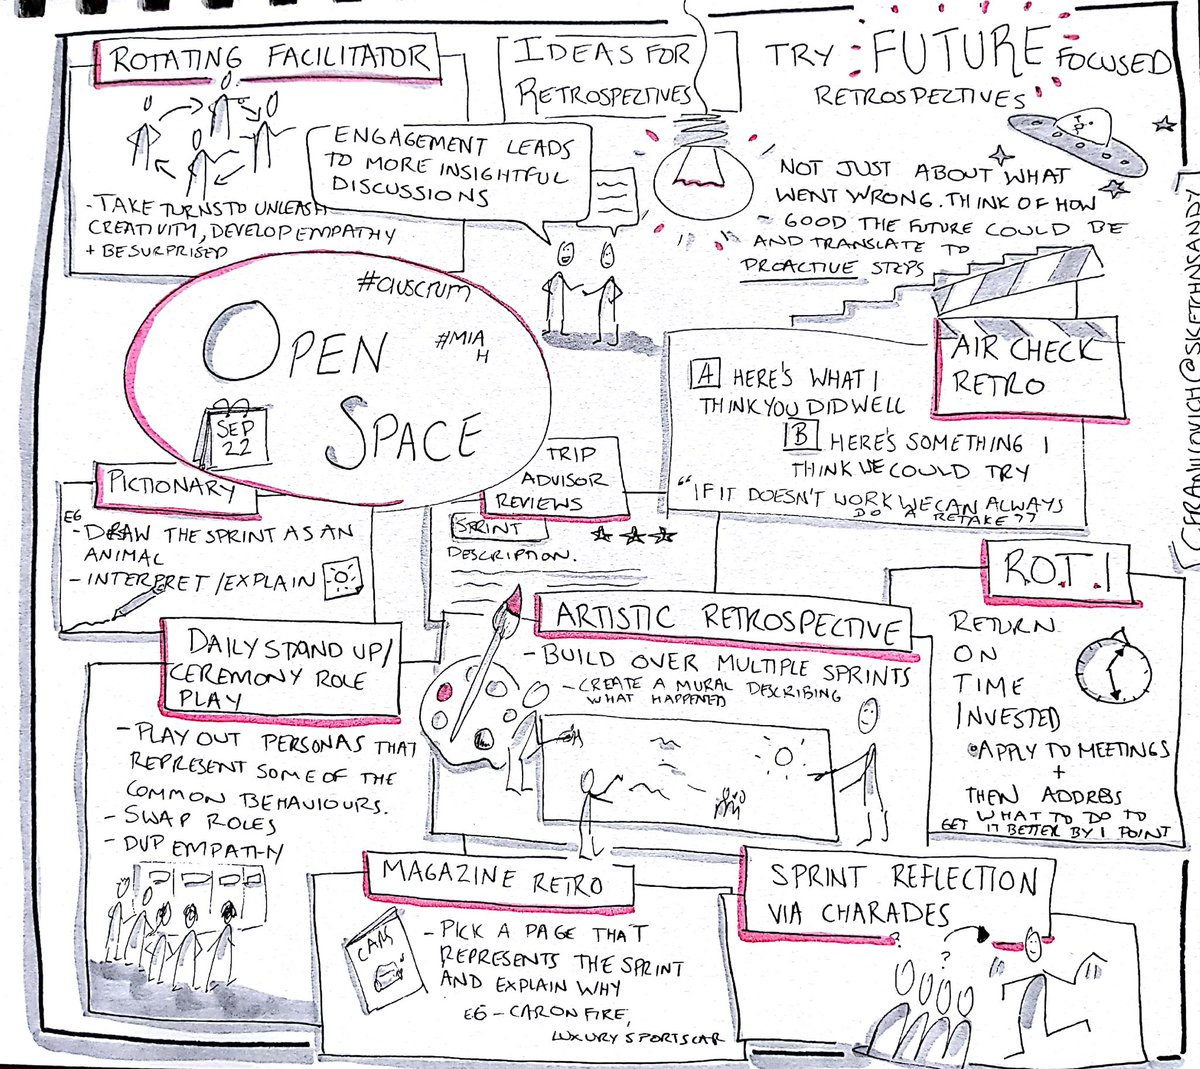 ROTATING FACILITATOR
- TAKE TURNS TO UNLEASH
CREATIVITY, DEVELOP EMPATHY
+ BE SURPRISED
IDEAS FOR
RETROSPECTIVES
ENGAGEMENT LEADS
TO MORE INSIGHTFUL
DISCUSSIONS
TRY FUTURE FOCUSED
RETROSPECTIVES
NOT JUST ABOUT WHAT
WENT WRONG. THINK OF HOW
GOOD THE FUTURE COULD BE
AND TRANSLATE TO
PROACTIVE STEPS
@SKETCHNSANDY
OPEN
SPACE
SEP
22
AIR CHECK
RETRO
A HERE'S WHAT I
THINK YOU DID WELL
B HERE'S SOMETHING I
THINK WE COULD TRY
"IF IT DOESN'T WORK WE CAN ALWAYS
DO A RETAKE??
PICTIONARY
EG
- DRAW THE SPRINT AS AN
ANIMAL
- INTERPRET/EXPLAIN
TRIP
ADVISOR
REVIEWS
SPRINT
DESCRIPTION.
DAILY STAND UP/
CEREMONY ROLE
PLAY
- PLAY OUT PERSONAS THAT
REPRESENT SOME OF THE
COMMON BEHAVIOURS.
- SWAP ROLES
- DVP EMPATHY
ARTISTIC RETROSPECTIVE
- BUILD OVER MULTIPLE SPRINTS
- CREATE A MURAL DESCRIBING
WHAT HAPPENED
R.O.T.I
RETURN
ON
TIME
INVESTED
• APPLY TO MEETINGS
+
THEN ADDRESS
WHAT TO DO TO
GET IT BETTER BY 1 POINT
MAGAZINE RETRO
CARS
- PICK A PAGE THAT
REPRESENTS THE SPRINT
AND EXPLAIN WHY
EG - CAR ON FIRE,
LUXURY SPORTSCAR
SPRINT REFLECTION
VIA CHARADES
? ?